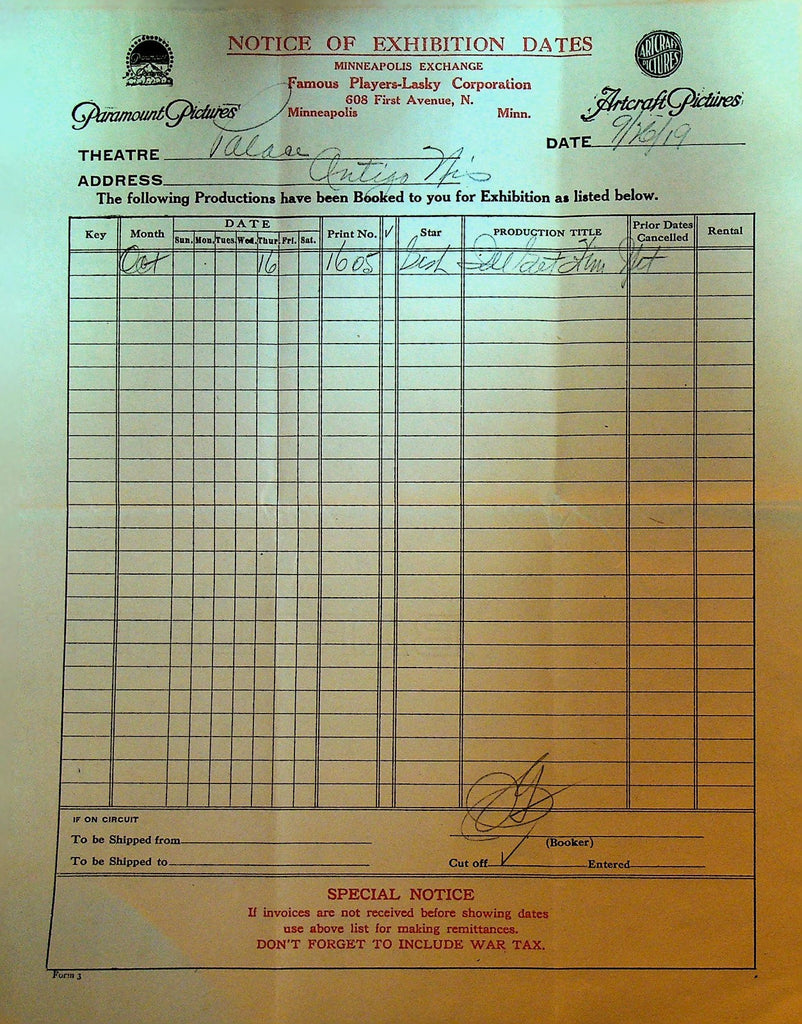 NOTICE OF EXHIBITION DATES
MINNEAPOLIS EXCHANGE
Famous Players-Lasky Corporation
608 First Avenue, N.
Minneapolis Minn.
Paramount Pictures
ARTCRAFT PICTURES
Paramount Pictures
Artcraft Pictures
THEATRE Palace
DATE 9/26/19
ADDRESS Antigo Wis
The following Productions have been Booked to you for Exhibition as listed below.
Key Month DATE Print No. √ Star PRODUCTION TITLE Prior Dates Cancelled Rental
Sun. Mon. Tues. Wed. Thur. Fri. Sat.
Oct 16 1605 Gish I'll Get Him Yet
IF ON CIRCUIT
To be Shipped from
(Booker)
To be Shipped to
Cut off √ Entered
SPECIAL NOTICE
If invoices are not received before showing dates
use above list for making remittances.
DON'T FORGET TO INCLUDE WAR TAX.
Form 3